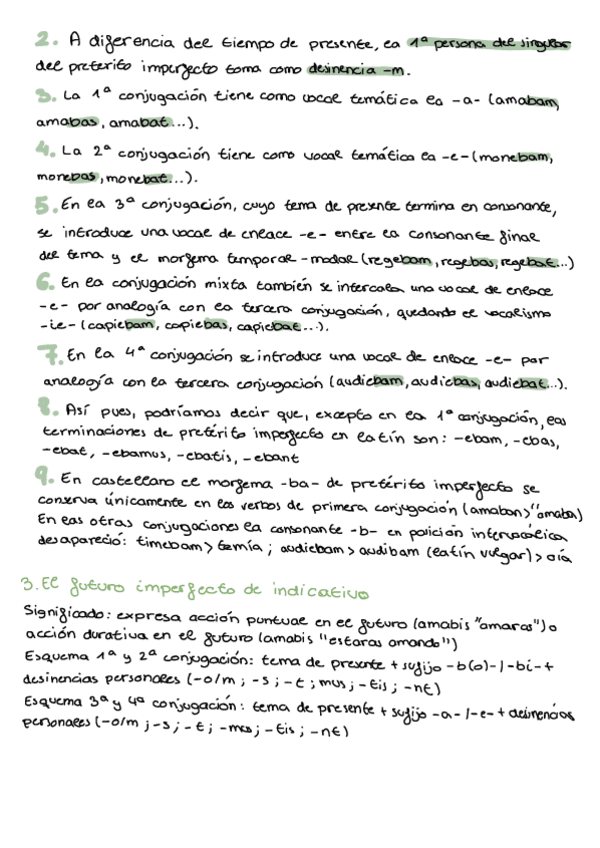 2. A diferencia del tiempo de presente, la 1ª persona del singular
del pretérito imperfecto toma como desinencia -m.
3. La 1ª conjugación tiene como vocal temática la -a- (amabam,
amabas, amabat...).
4. La 2ª conjugación tiene como vocal temática la -e- (monebam,
monebas, monebat...).
5. En la 3ª conjugación, cuyo tema de presente termina en consonante,
se introduce una vocal de enlace -e- entre la consonante final
del tema y el morfema temporal-modal (regebam, regebas, regebat...)
6. En la conjugación mixta también se intercala una vocal de enlace
-e- por analogía con la tercera conjugación, quedando el vocalismo
-ie- (capiebam, capiebas, capiebat...).
7. En la 4ª conjugación se introduce una vocal de enlace -e- por
analogía con la tercera conjugación (audiebam, audiebas, audiebat...).
8. Así pues, podríamos decir que, excepto en la 1ª conjugación, las
terminaciones de pretérito imperfecto en latín son: -ebam, -ebas,
-ebat, -ebamus, -ebatis, -ebant
9. En castellano el morfema -ba- de pretérito imperfecto se
conserva únicamente en los verbos de primera conjugación (amaban>"amaba)
En las otras conjugaciones la consonante -b- en posición intervocálica
desapareció: timebam> temía; audiebam> audibam (latín vulgar)> oía
3. El futuro imperfecto de indicativo
Significado: expresa acción puntual en el futuro (amabis "amaras") o
acción durativa en el futuro (amabis "estaras amando")
Esquema 1ª y 2ª conjugación: tema de presente + sufijo -b(o)-/-bi-+
desinencias personales (-o/m ; -s ; -t ; mus ; -tis ; -nt)
Esquema 3ª y 4ª conjugación: tema de presente + sufijo -a-/-e- + desinencias
personales (-o/m ; -s ; -t ; -mus ; -tis ; -nt)